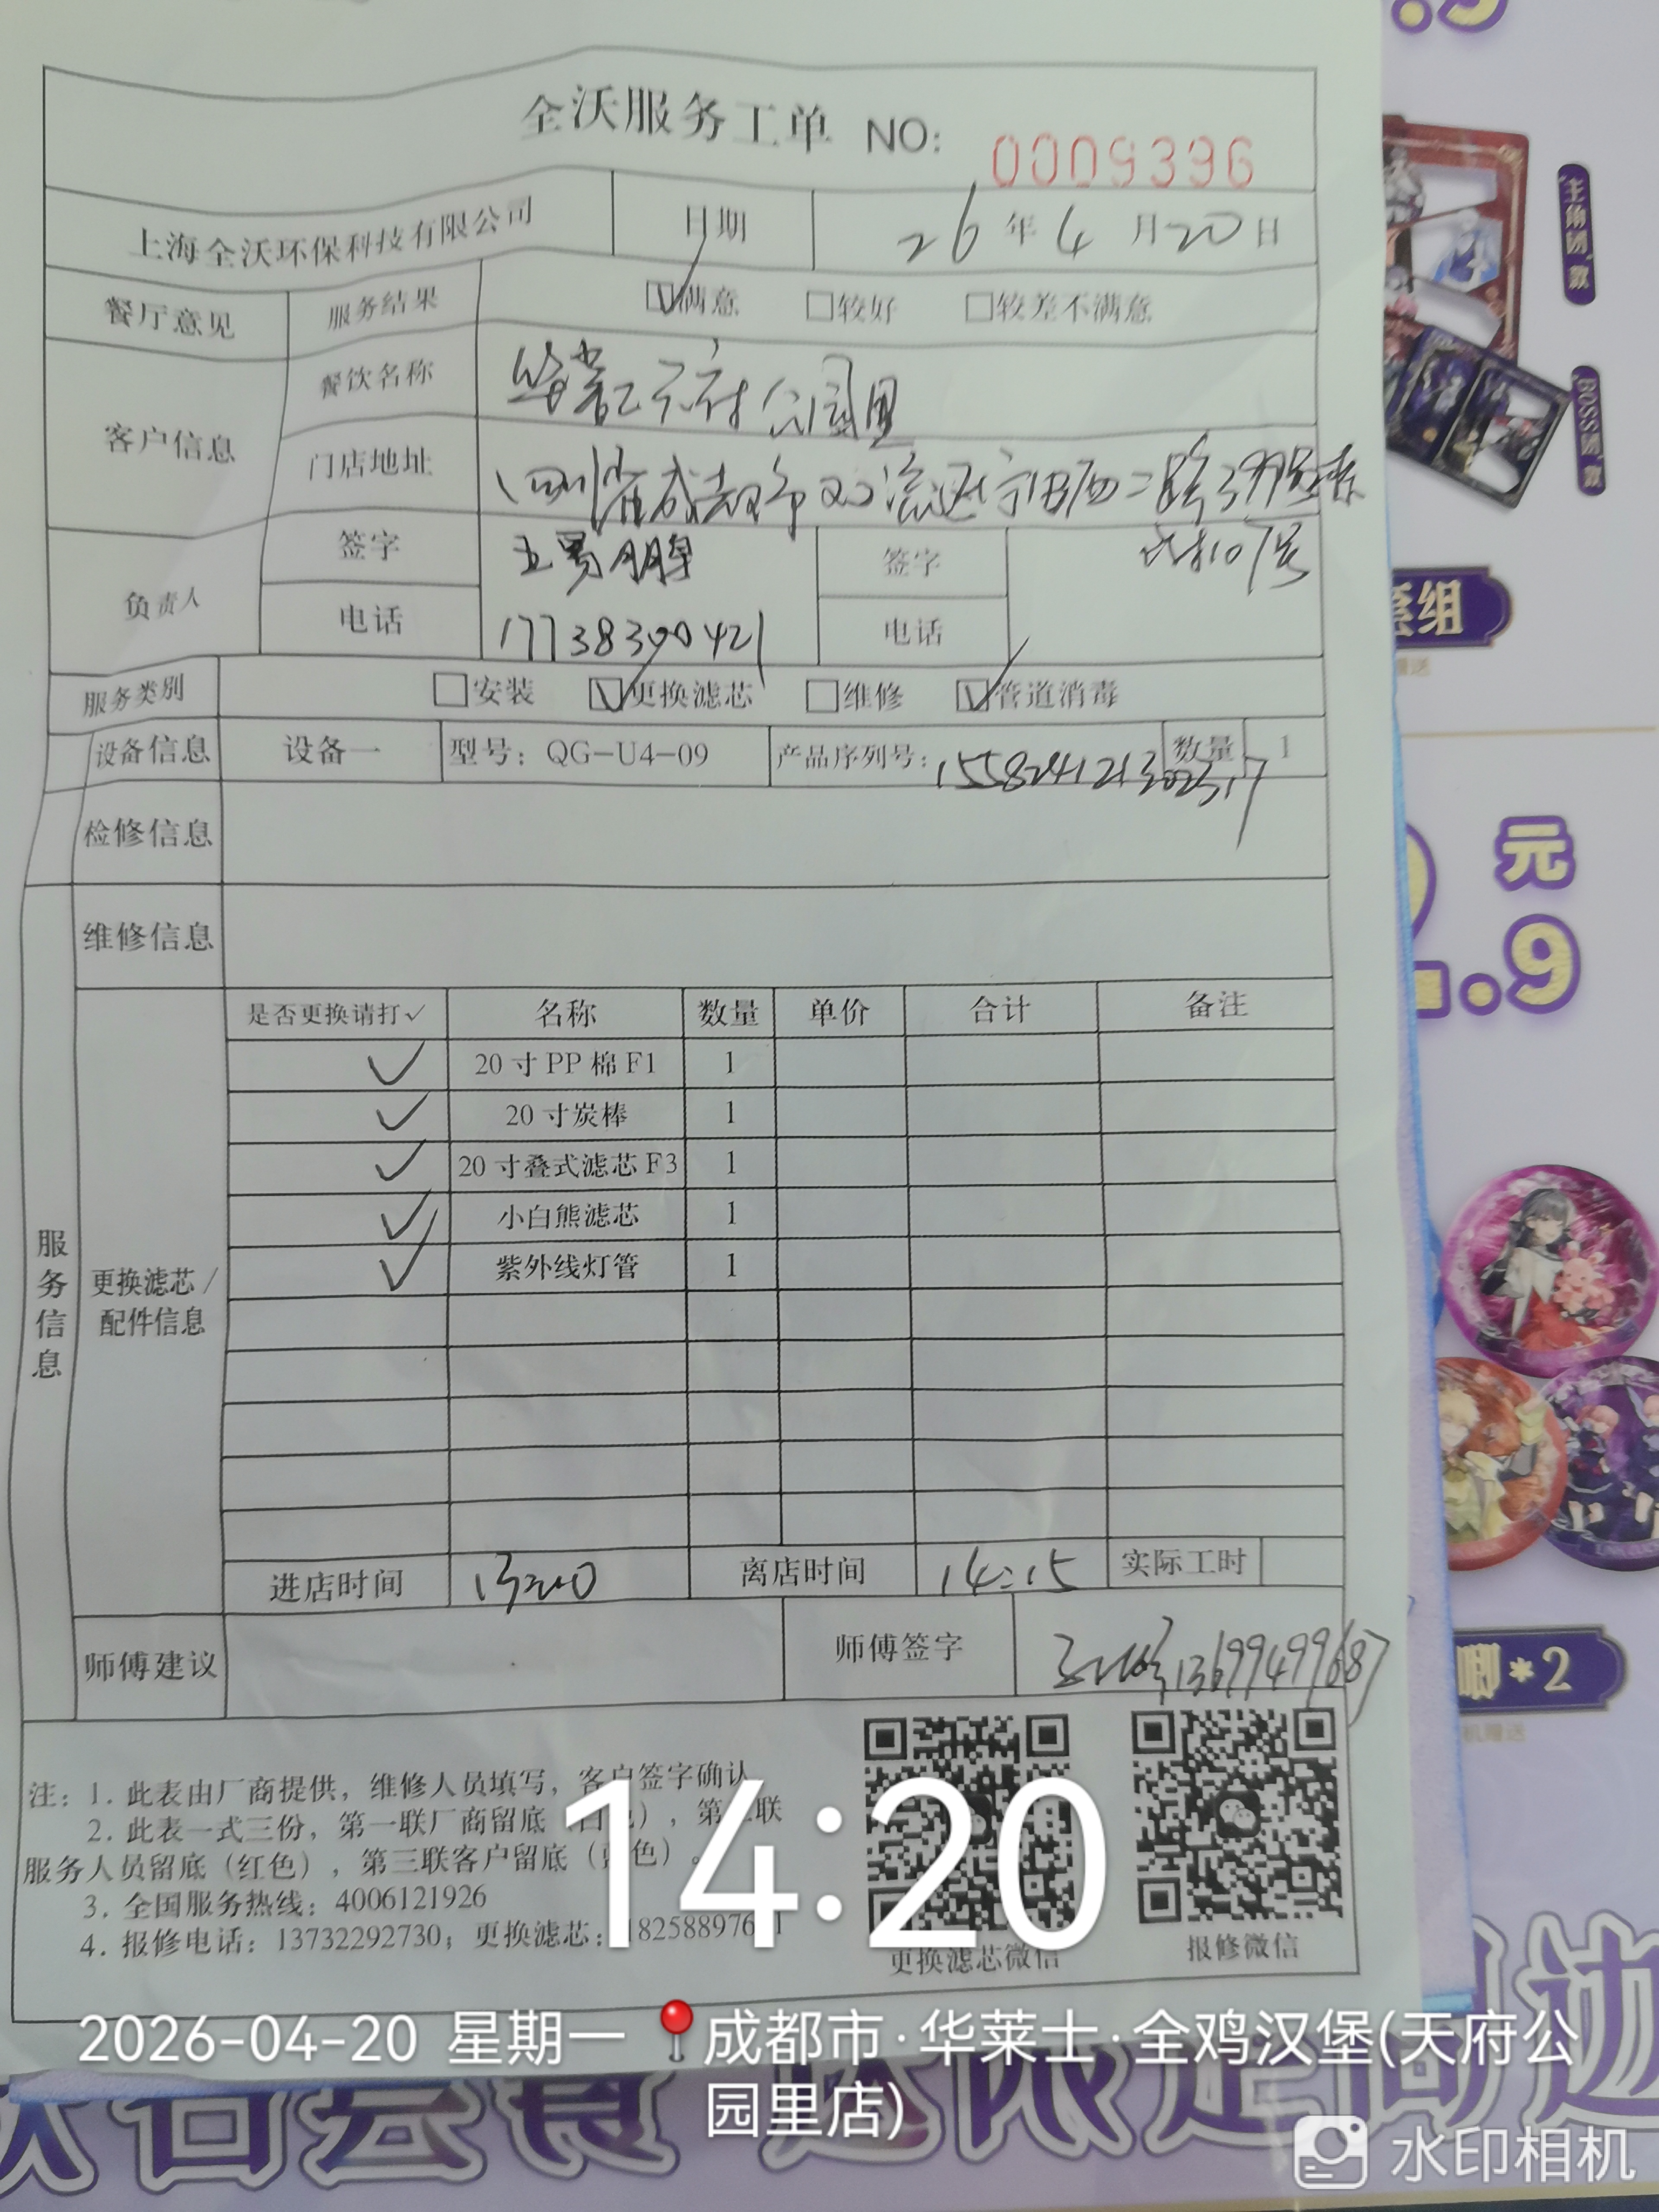 全沃服务工单 NO: 0009396
上海全沃环保科技有限公司 日期 26年4月20日
餐厅意见 服务结果 ☑满意 □较好 □较差不满意
客户信息 餐饮名称 华莱士天府公园里
门店地址 四川省成都市双流区 西二路399号
107号
负责人 签字 签字
电话 17738300421 电话
服务类别 □安装 ☑更换滤芯 □维修 ☑管道消毒
设备信息 设备一 型号：QG-U4-09 产品序列号： 数量 1
检修信息
维修信息
服务信息
更换滤芯/
配件信息
是否更换请打✓ 名称 数量 单价 合计 备注
✓ 20寸PP棉F1 1
✓ 20寸炭棒 1
✓ 20寸叠式滤芯F3 1
✓ 小白熊滤芯 1
✓ 紫外线灯管 1
进店时间 13:20 离店时间 14:15 实际工时
师傅建议 师傅签字 13699499687
注：1. 此表由厂商提供，维修人员填写，客户签字确认
2. 此表一式三份，第一联厂商留底（白色），第二联
服务人员留底（红色），第三联客户留底（蓝色）。
3. 全国服务热线：4006121926
4. 报修电话：13732292730；更换滤芯：
更换滤芯微信 报修微信
14:20
2026-04-20 星期一 成都市·华莱士·全鸡汉堡(天府公
园里店)
水印相机
主角团款
BOSS团款
套组
元
.9
唧*2